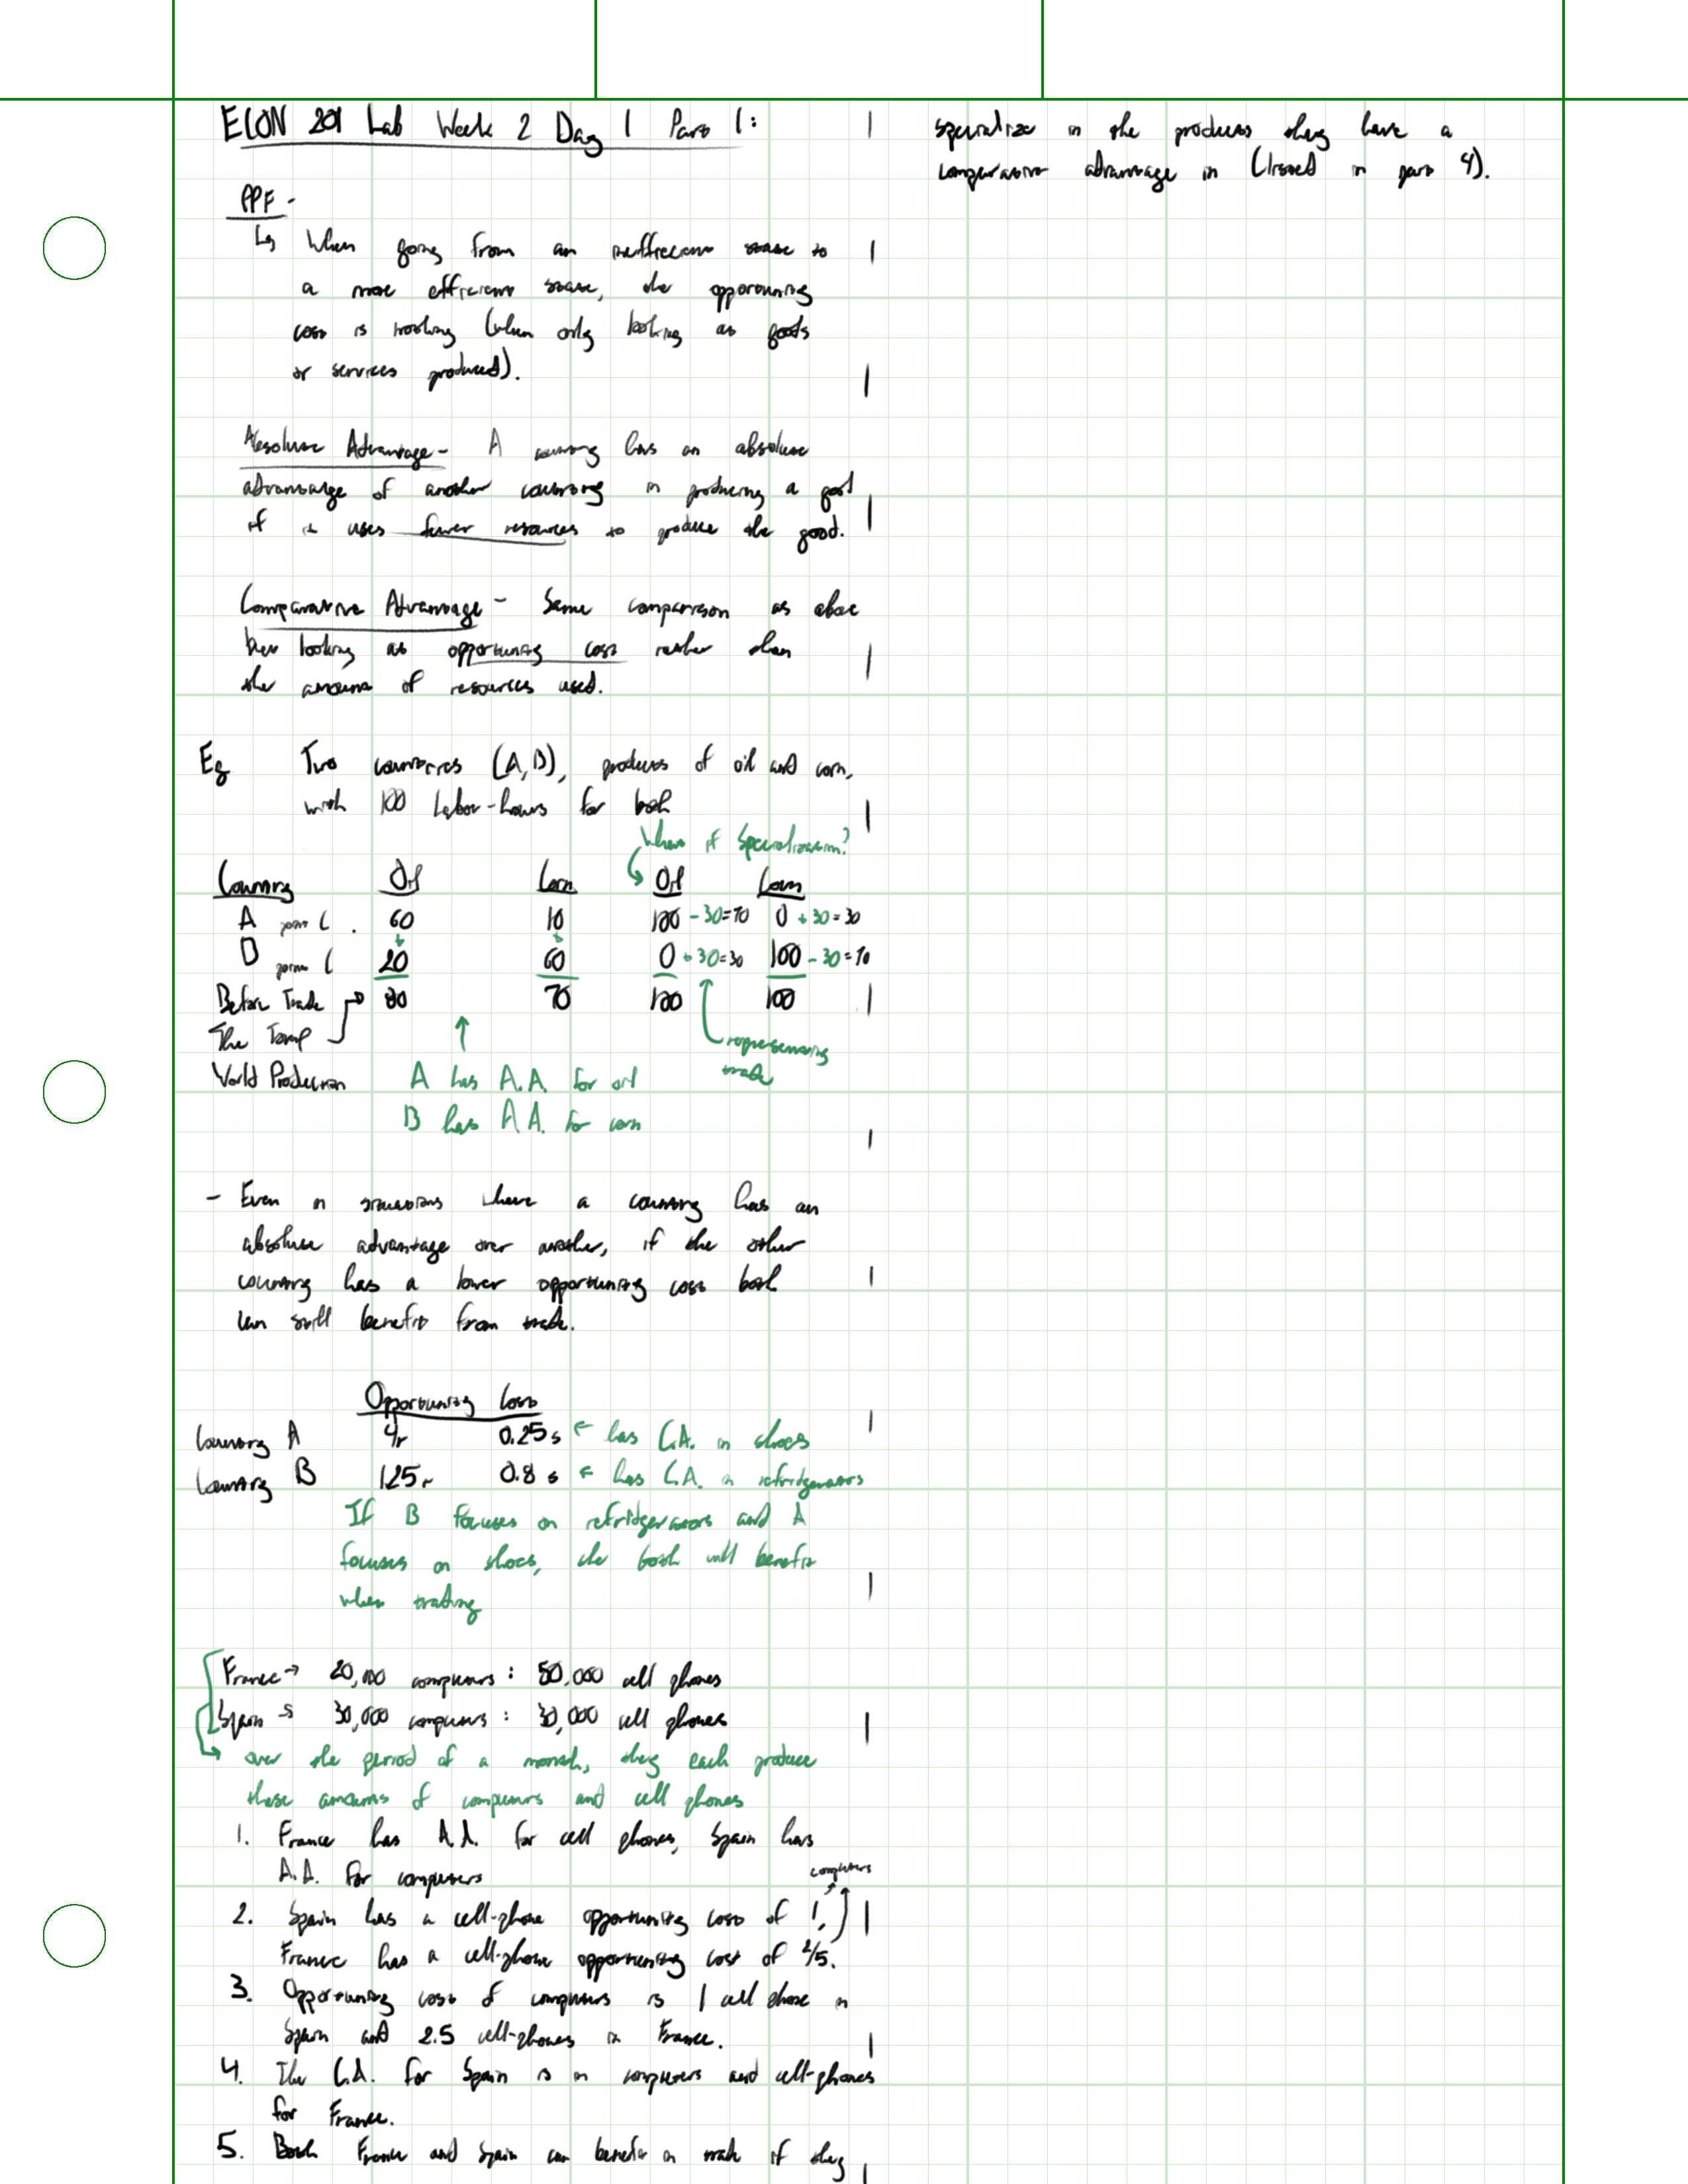 ECON 201 Lab Week 2 Day 1 Part 1:
PPF -
↳ When going from an inefficient state to
a more efficient state, the opportunity
cost is nothing (when only looking at goods
or services produced).
Absolute Advantage - A country has an absolute
advantage of another country in producing a good
if it uses fewer resources to produce the good.
Comparative Advantage - Same comparison as above
but looking at opportunity cost rather than
the amount of resources used.
Eg Two countries (A,B), produces of oil and corn,
with 100 Labor-hours for both
When if Specialization?
Country Oil Corn Oil Corn
A 60 10 100 - 30 = 70 0 + 30 = 30
B 20 60 0 + 30 = 30 100 - 30 = 70
Before Trade → 80 70 100 100
The Total
World Production
representing
trade
A has A.A. for oil
B has A.A. for corn
- Even in situations where a country has an
absolute advantage over another, if the other
country has a lower opportunity cost both
can still benefit from trade.
Opportunity Cost
Country A 4r 0.25s ← has C.A. in shoes
Country B 1.25r 0.8s ← has C.A. in refridgerators
If B focuses on refridgerators and A
focuses on shoes, the both will benefit
when trading
France → 20,000 computers : 50,000 cell phones
Spain → 30,000 computers : 30,000 cell phones
over the period of a month, they each produce
these amounts of computers and cell phones
1. France has A.A. for cell phones, Spain has
A.A. for computers
computers
2. Spain has a cell-phone opportunity cost of 1,
France has a cell-phone opportunity cost of 2/5.
3. Opportunity cost of computers is 1 cell phone in
Spain and 2.5 cell-phones in France.
4. The C.A. for Spain is in computers and cell-phones
for France.
5. Both France and Spain can benefit in trade if they
specialize in the products they have a
comparative advantage in (listed in part 4).